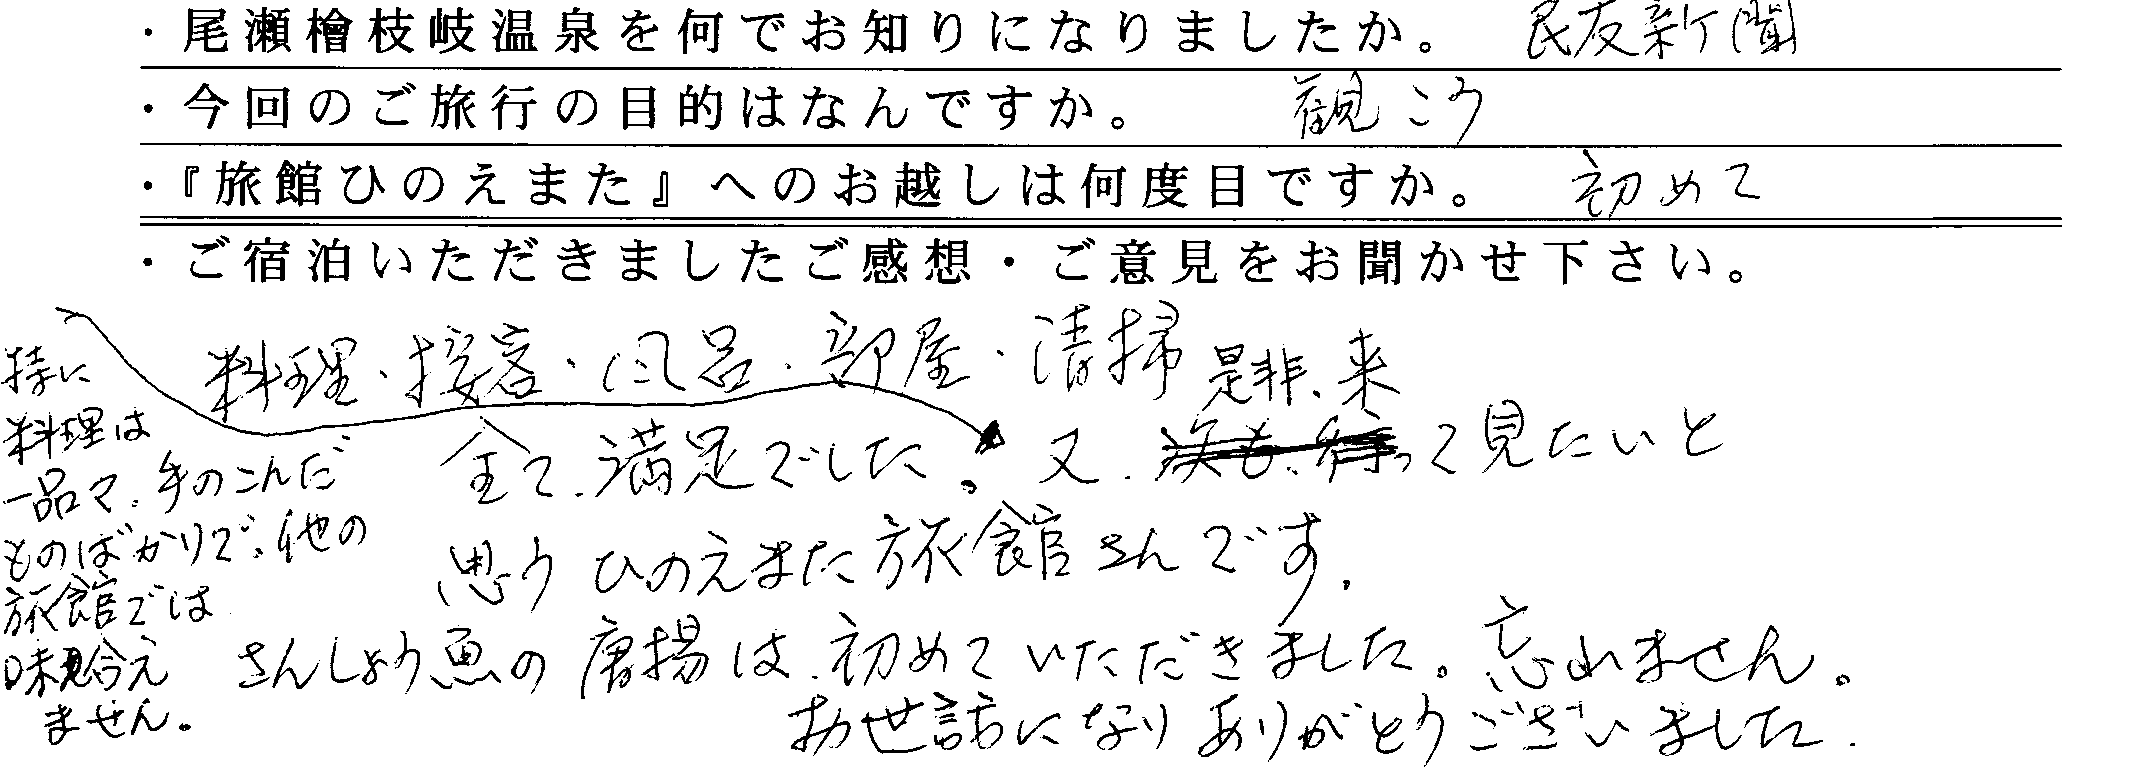 ・尾瀬檜枝岐温泉を何でお知りになりましたか。 民友新聞
・今回のご旅行の目的はなんですか。 観こう
・『旅館ひのえまた』へのお越しは何度目ですか。 初めて
・ご宿泊いただきましたご感想・ご意見をお聞かせ下さい。
料理・接客・風呂・部屋・清掃
全て、満足でした。又、是非、来って見たいと
思うひのえまた旅館さんです。
特に
料理は
一品マ、手のこんだ
ものばかりで、他の
旅館では
味見合え
ません。
さんしょう魚の唐揚は、初めていただきました。忘れません。
お世話になりありがとうございました.